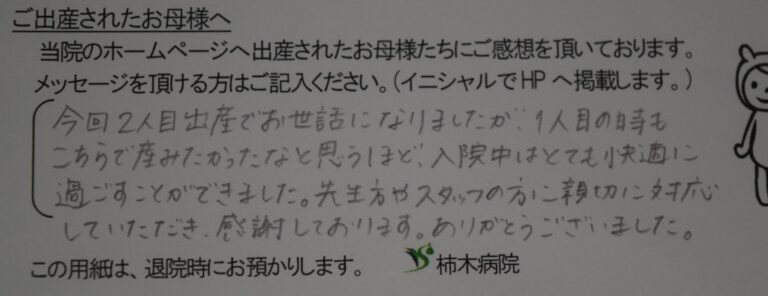 ご出産されたお母様へ
当院のホームページへ出産されたお母様たちにご感想を頂いております。
メッセージを頂ける方はご記入ください。（イニシャルでHPへ掲載します。）
今回2人目出産でお世話になりましたが、1人目の時も
こちらで産みたかったなと思うほど、入院中はとても快適に
過ごすことができました。先生方やスタッフの方に親切に対応
していただき、感謝しております。ありがとうございました。
この用紙は、退院時にお預かりします。 柿木病院